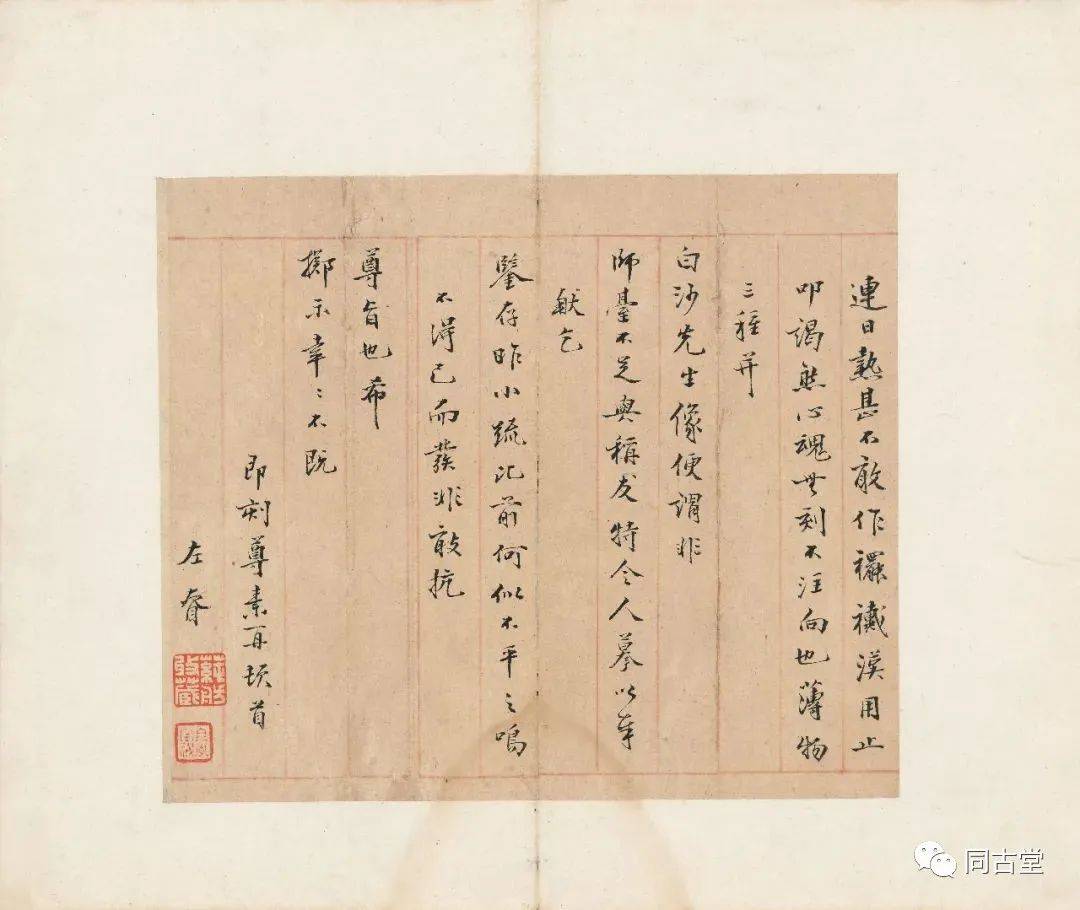 連日熱甚不敢作襶漢用止
叩謁然心魂無刻不注向也薄物
三種并
白沙先生像便謂非
師臺不足與稱友特令人摹以奉
獻乞
鑒存昨小疏比前何似不平之鳴
不得已而發非敢抗
尊旨也希
擲示幸〻不既
即刻尊素再頓首
左眷
收藏
同古堂